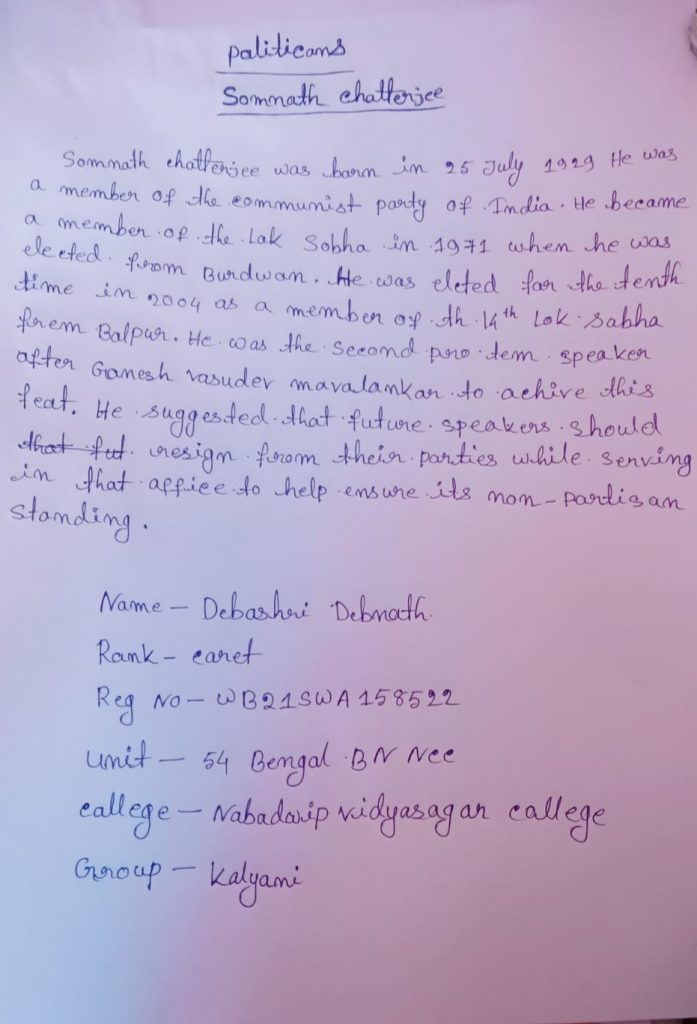 paliticans
Somnath chatterjee
Somnath chatterjee was barn in 25 July 1929 He was
a member of the communist party of India. He became
a member of the Lak Sobha in 1971 when he was
elected from Burdwan. He was eleted far the tenth
time in 2004 as a member of th 14th Lok Sabha
frem Balpur. He was the second pro tem speaker
after Ganesh vasudev mavalankar to achive this
feat. He suggested that future speakers should
that fut resign from their parties while serving
in that affice to help ensure its non-partisan
standing.
Name - Debashri Debnath
Rank - caret
Reg No - WB21SWA158522
unit - 54 Bengal BN Ncc
callege - Nabadwip vidyasagar callege
Group - Kalyani